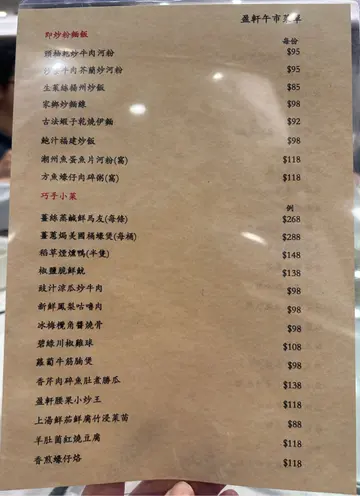 盈軒午市菜單
即炒粉麵飯
每份
頭抽乾炒牛肉河粉 $95
沙爹牛肉芥蘭炒河粉 $95
生菜絲揚州炒飯 $85
家鄉炒麵線 $98
古法蝦子乾燒伊麵 $92
鮑汁福建炒飯 $98
潮州魚蛋魚片河粉(窩) $118
方魚蠔仔肉碎粥(窩) $118
巧手小菜
例
薑絲蒸鹹鮮馬友(每條) $268
薑蔥焗美國桶蠔煲(每桶) $288
稻草煙燻鴨(半隻) $148
椒鹽脆鮮魷 $138
豉汁涼瓜炒牛肉 $98
新鮮鳳梨咕嚕肉 $98
冰梅欖角醬燒骨 $98
碧綠川椒雞球 $108
蘿蔔牛筋腩煲 $98
香芹肉碎魚肚煮勝瓜 $138
盈軒腰果小炒王 $118
上湯鮮茄鮮腐竹浸菜苗 $88
羊肚菌紅燒豆腐 $118
香煎蠔仔烙 $118